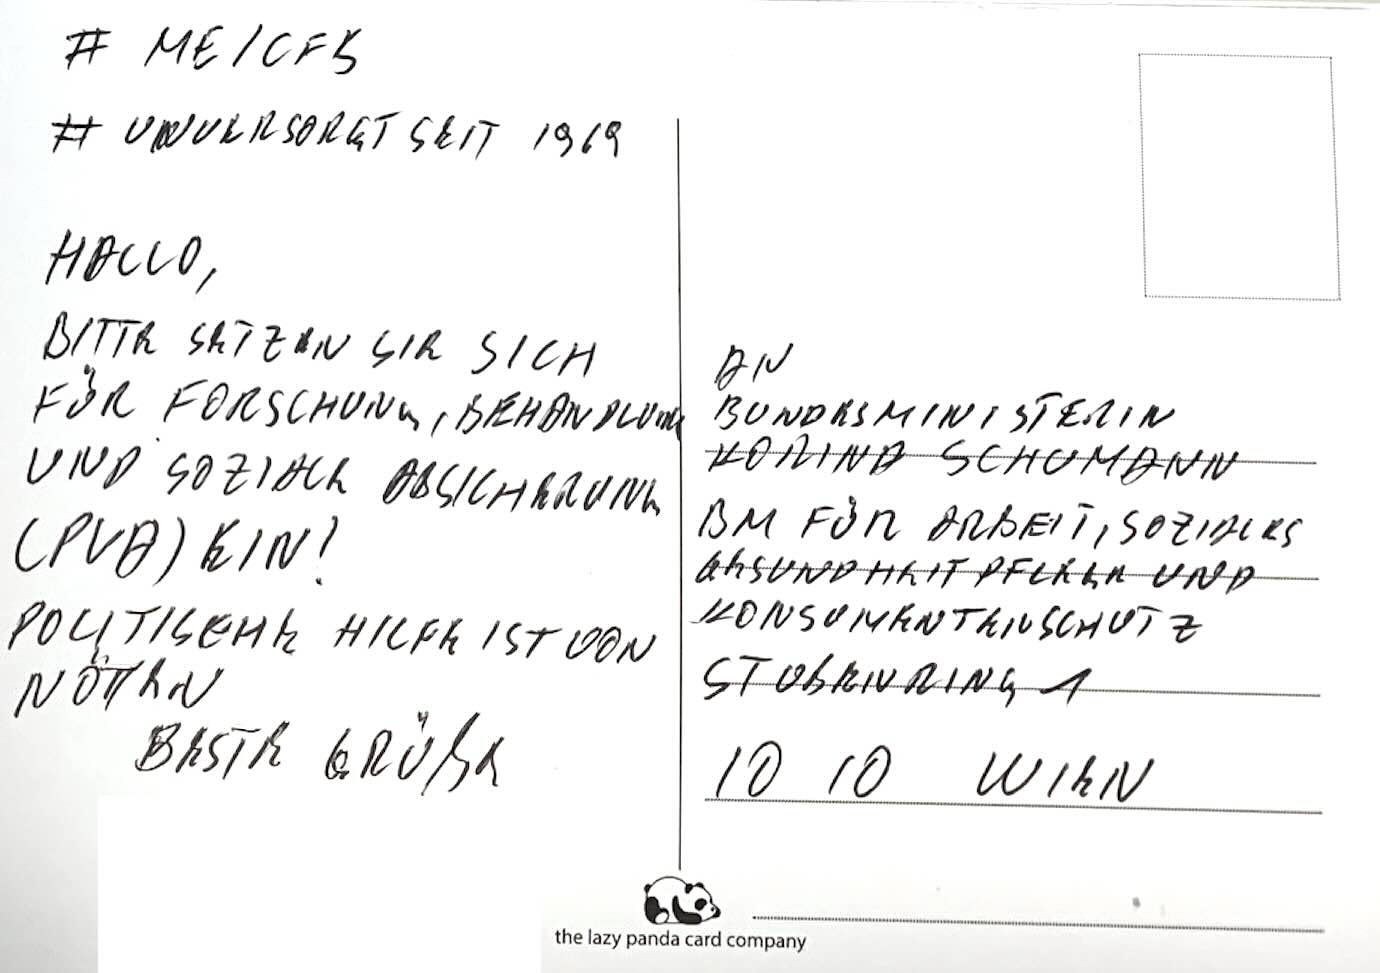 # ME/CFS
# UNVERSORGT SEIT 1969
HALLO,
BITTE SETZEN SIE SICH
FÜR FORSCHUNG, BEHANDLUNG
UND SOZIALE ABSICHERUNG
(PVA) EIN!
POLITISCHE HILFE IST VON
NÖTEN
BESTE GRÜẞE
AN
BUNDESMINISTERIN
KORINNA SCHUMANN
BM FÜR ARBEIT, SOZIALES
GESUNDHEIT PFLEGE UND
KONSUMENTENSCHUTZ
STUBENRING 1
10 10 WIEN
the lazy panda card company